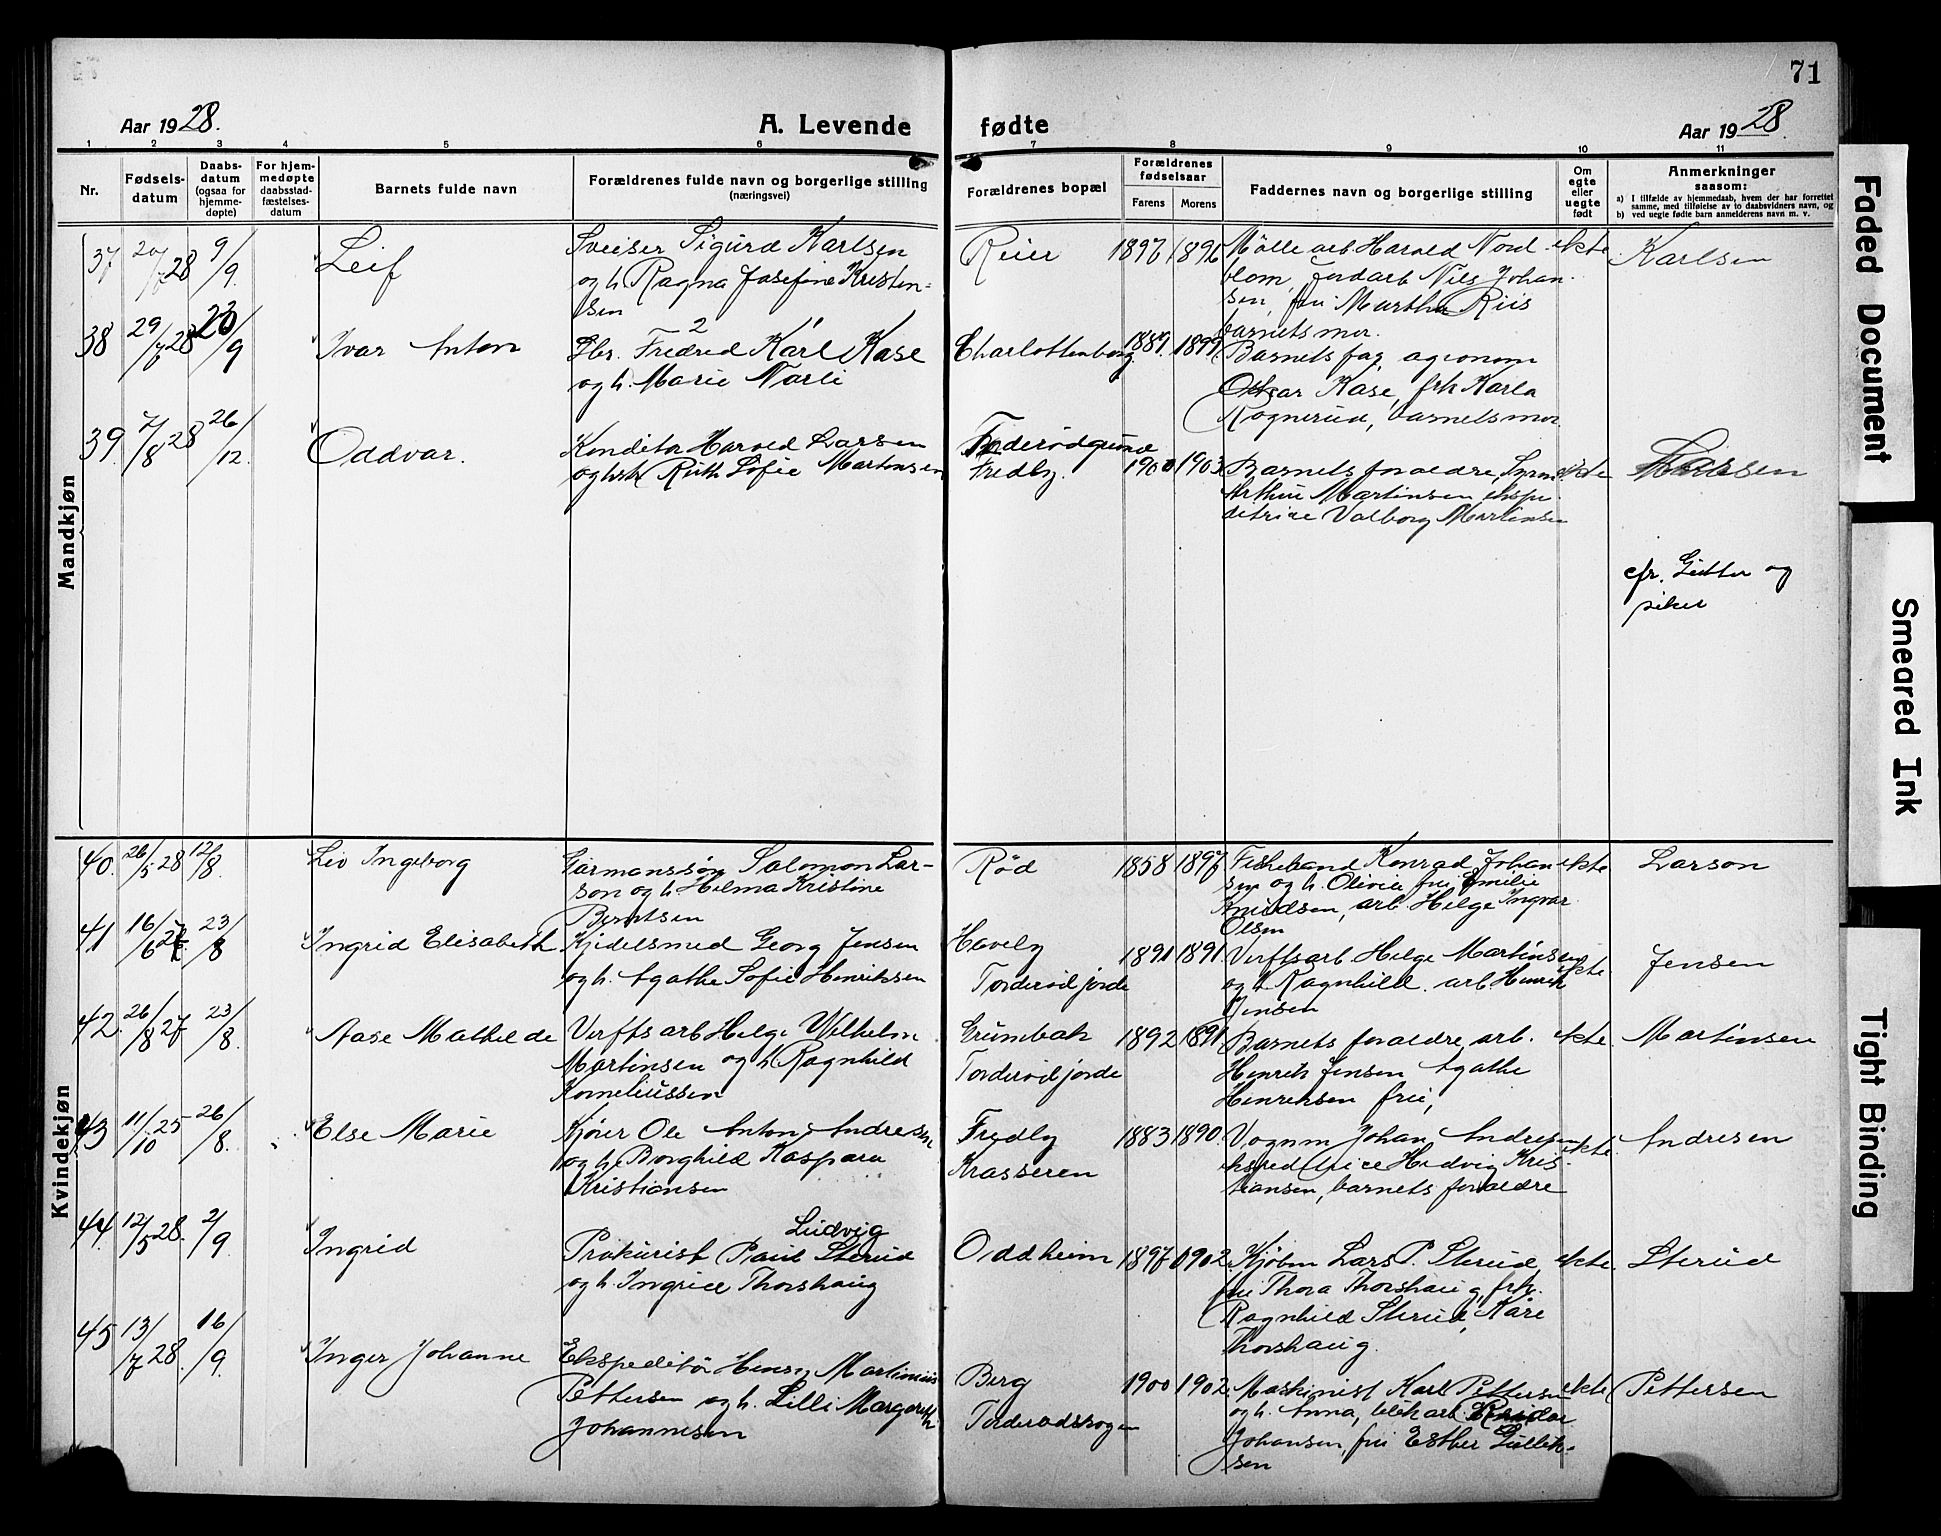 71
Aar 1928.
A. Levende
fødte
Aar 1928.
1 2 3 4 5 6 7 8 9 10 11
Nr.
Fødsels-
datum
Daabs-
datum
(ogsaa for
hjemme-
døpte)
For hjem-
medøpte
daabsstad-
fæstelses-
datum
Barnets fulde navn
Forældrenes fulde navn og borgerlige stilling
(næringsvei)
Forældrenes bopæl
Forældrenes
fødselsaar
Farens Morens
Faddernes navn og borgerlige stilling
Om
egte
eller
uegte
født
Anmerkninger
saasom:
a) I tilfælde av hjemmedaab, hvem der har forrettet
samme, med tilføielse av to daabsvidners navn, og
b) ved uegte fødte barn anmelderens navn m. v.
Mandkjøn
37 20/7 28 9/9 Leif
Sveiser Sigurd Karlsen
og h. Ragna Josefine Kristen-
sen
Reier 1897 1896
Mølle arb Harald Nord
blom, Jordarb Nils Johan-
sen, fru Martha Riis
barnets mor.
ekte Karlsen
38 29/7 28 23/9 Ivar Anton
Gbr. Fredred Karl Kase
og h. Marie Narli
Charlottenborg 1889. 1899
Barnets far, agronom
Oskar Kase, frk Karla
Rognerud, barnets mor
39. 2/8 28 26/12. Oddvar.
Konditor Harald Larsen
og hst Ruth Sofie Martinsen
Torderødgrund
Fredly. 1900 1903
Barnets foraeldre,
Arthur Martinsen ekspe-
ditrice Valborg Martinsen
ekte Larsen
cfr. Gutter og
piker
Kvindekjøn
40. 26/5 28 12/8. Liv Ingeborg
Garmanssøn Salomon Lar-
son og h. Hilma Kristine
Berntsen
Rød 1858 1897
Fiskehand Konrad Johan
sen og h. Olivia fru Emilie
Knudsen, arb Helge Ingvar
Olsen
ekte Larson
41 16/6 27 23/8 Ingrid Elisabeth
Kjedelsmed Georg Jensen
og h. Agathe Sofie Henriksen
Havely
Torderød jorde
1891 1891.
Verftsarb Helge Martinsen
og h Ragnhild. arb. Henrik
Jensen
ekte Jensen
42. 26/8 27 23/8. Aase Mathilde
Verfts arb Helge Wilhelm
Martinsen og h Ragnhild
Korneliussen
Grumbak
Torderød jorde
1892 1891
Barnets foraeldre, arb.
Henrik Jensen Agathe
Henriksen frue,
ekte. Martinsen
43 11/10 25 26/8. Else Marie
Kjører Ole Anton Andresen
og h. Borghild Kaspara
Kristiansen
Fredly
Krasseren
1883 1890.
Vognm Johan Andresen
ekspeditrice Hedvig Kris-
tiansen, barnets foraeldre
ekte. Andresen
44. 12/5 28. 2/9. Ingrid
Ludvig
Prokurist Paul Sterud
og h. Ingrid Thorshaug
Oddheim 1897 1902.
Kjøbm Lars P. Sterud,
fru Thora Thorshaug, frk.
Ragnhild Sterud, Kåre
Thorshaug.
ekte. Sterud
45 13/7 28. 16/9. Inger Johanne
Ekspeditør Henry Martinius
Pettersen og h. Lilli Margareth
Johannesen
Berg
Torderødskogen
1900 1902
Maskinist Karl Pettersen
og h. Anna, blek arb. Reidar
Johansen, fru Esther Gullik-
sen
ekte Pettersen
Faded Document
Smeared Ink
Tight Binding